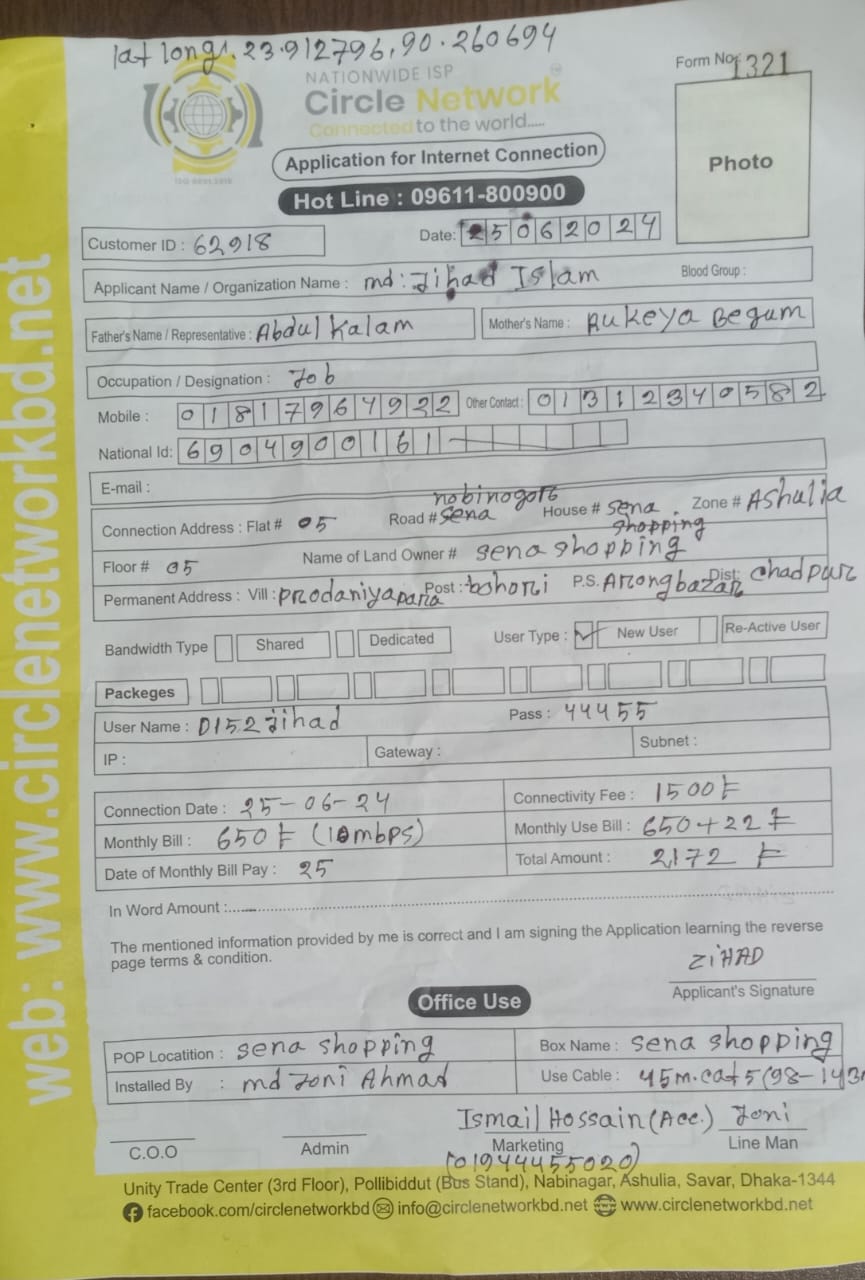 lat long: 23.912796, 90.260694
NATIONWIDE ISP
Circle Network
Connected to the world.....
ISO 9001:2015
Form No: 1321
Photo
Application for Internet Connection
Hot Line : 09611-800900
Customer ID : 62918
Date: 25062024
Applicant Name / Organization Name : md: Jihad Islam Blood Group :
Father's Name / Representative : Abdul Kalam Mother's Name : Rukeya Begum
Occupation / Designation : Job
Mobile : 01817964922 Other Contact : 01312340582
National Id: 6904900161
E-mail :
Connection Address : Flat # 05 Road # sena nobinogor House # sena shopping Zone # Ashulia
Floor # 05 Name of Land Owner # sena shopping
Permanent Address : Vill : prodaniyapara Post : bohori P.S. Arongbazar Dist: Chadpur
Bandwidth Type Shared Dedicated User Type : ✓ New User Re-Active User
Packeges
User Name : D152Jihad Pass : 44455
IP : Gateway : Subnet :
Connection Date : 25-06-24 Connectivity Fee : 1500 ৳
Monthly Bill : 650 ৳ (10mbps) Monthly Use Bill : 650+22 ৳
Date of Monthly Bill Pay : 25 Total Amount : 2172 ৳
In Word Amount :..........
The mentioned information provided by me is correct and I am signing the Application learning the reverse
page terms & condition.
ZiHAD
Applicant's Signature
Office Use
POP Locatition : sena shopping Box Name : sena shopping
Installed By : md Joni Ahmad Use Cable : 45m.cat5(98-143
Ismail Hossain (Acc.) Joni
C.O.O Admin Marketing Line Man
(01944455020)
Unity Trade Center (3rd Floor), Pollibiddut (Bus Stand), Nabinagar, Ashulia, Savar, Dhaka-1344
facebook.com/circlenetworkbd info@circlenetworkbd.net www.circlenetworkbd.net
web: www.circlenetworkbd.net